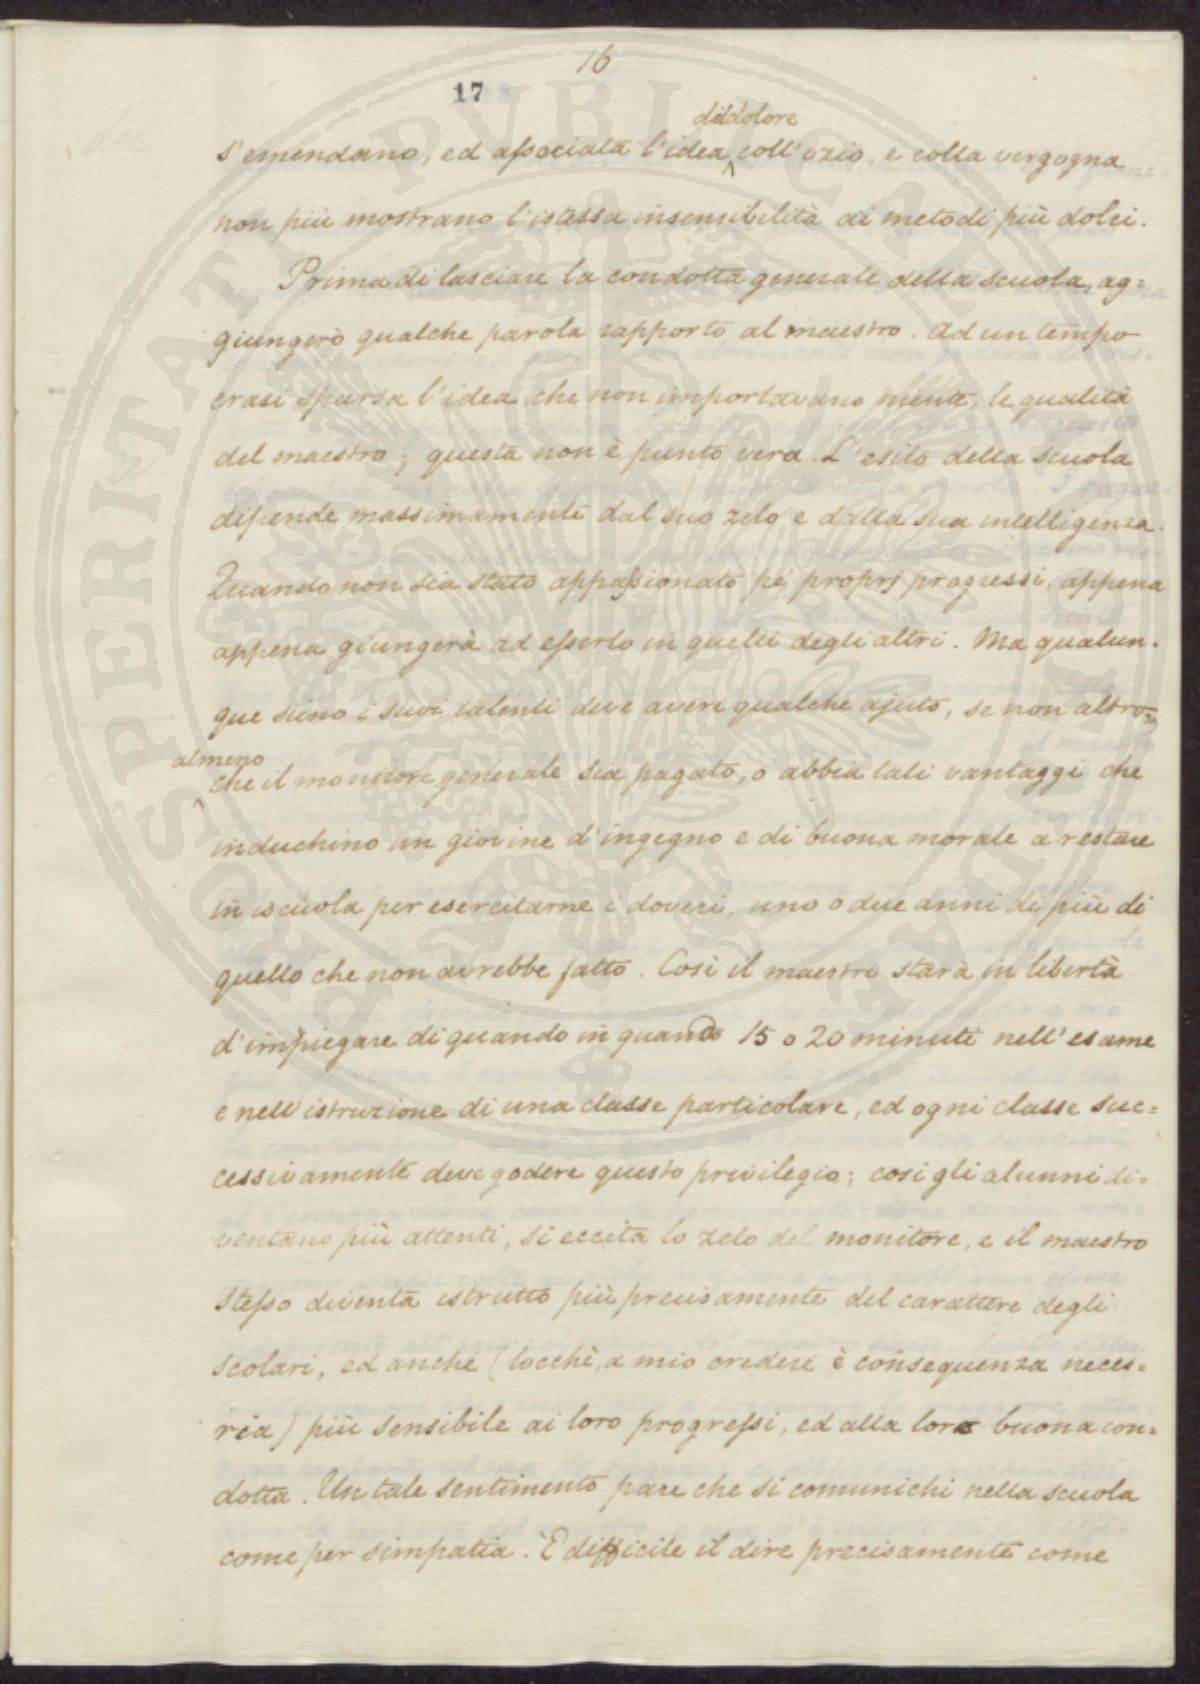 16
17
del dolore
s'emendano, ed associata l'idea ^ coll'ozio, e colla vergogna
non più mostrano l'istessa insensibilità ai metodi più dolci.
Prima di lasciare la condotta generale della scuola, ag=
giungerò qualche parola rapporto al maestro. Ad un tempo
erasi sparsa l'idea, che non importavano niente, le qualità
del maestro; questa non è punto vera. L'esito della scuola
dipende massimamente dal suo zelo e dalla sua intelligenza.
Quando non sia stato appassionato pe' proprj progressi, appena
appena giungerà ad esserlo in quelli degli altri. Ma qualun=
que sieno i suoi talenti deve avere qualche ajuto, se non altro,
almeno
^ che il monitore generale sia pagato, o abbia tali vantaggi che
induchino un giovine d'ingegno e di buona morale a restare
in iscuola per esercitarne i doveri, uno o due anni di più di
quello che non avrebbe fatto. Così il maestro starà in libertà
d'impiegare di quando in quando 15 o 20 minuti nell'esame
e nell'istruzione di una classe particolare, ed ogni classe suc=
cessivamente deve godere questo privilegio; così gli alunni di=
ventano più attenti, si eccita lo zelo del monitore, e il maestro
stesso diventa istrutto più precisamente del carattere degli
scolari, ed anche (locchè, a mio credere è conseguenza neces=
ria) più sensibile ai loro progressi, ed alla loro buona con=
dotta. Un tale sentimento pare che si comunichi nella scuola
come per simpatia. È difficile il dire precisamente come
PROSPERITATI PUBLICAE AUGENDAE